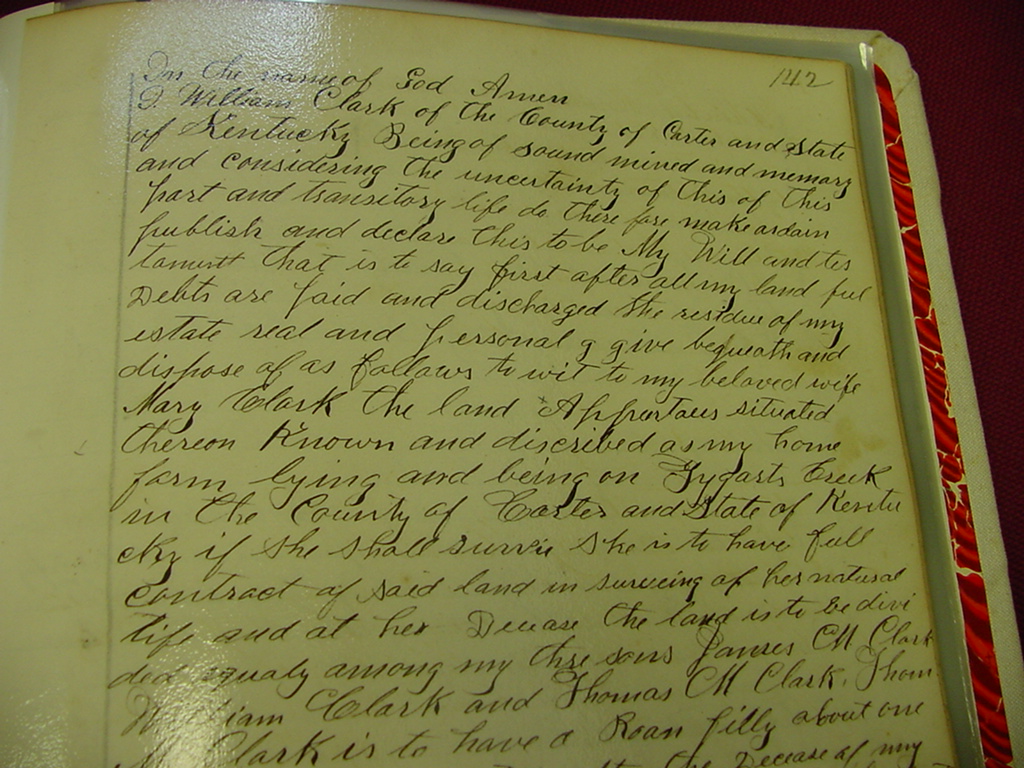 142
In the name of God Amen
I William Clark of the County of Carter and State
of Kentucky Being of sound mined and memory
and considering the uncertainty of this of this
part and transitory life do there fore make ordain
publish and declare this to be My Will and tes
tament that is to say first after all my land ful
Debts are paid and discharged the residue of my
estate real and personal g give bequeath and
dispose of as follows to wit to my beloved wife
Mary Clark the land situated
thereon Known and discribed as my home
farm lying and being on Tygarts Creek
in the County of Carter and State of Kentu
cky if she shall survive she is to have full
contract of said land in surveing of her natural
life and at her Decease the land is to be divi
ded equaly among my thre sons James M Clark
William Clark and Thomas M Clark. Thom
M Clark is to have a Roan filly about one
the Decease of my